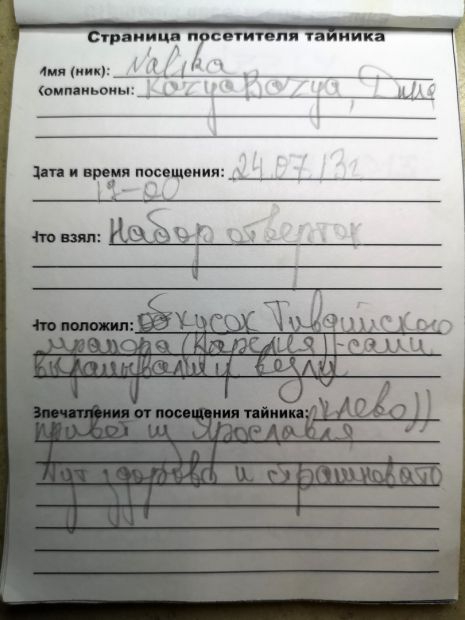 Страница посетителя тайника
Имя (ник): Nalika
Компаньоны: KozyaBozya, Дина
Дата и время посещения: 24.07.13г
19-00
Что взял: Набор отверток
Что положил: кусок Тивдийского
мрамора (Карелия) - сами
выпиливали и везли
Впечатления от посещения тайника: клево))
привет из Ярославля
Тут здорово и страшновато